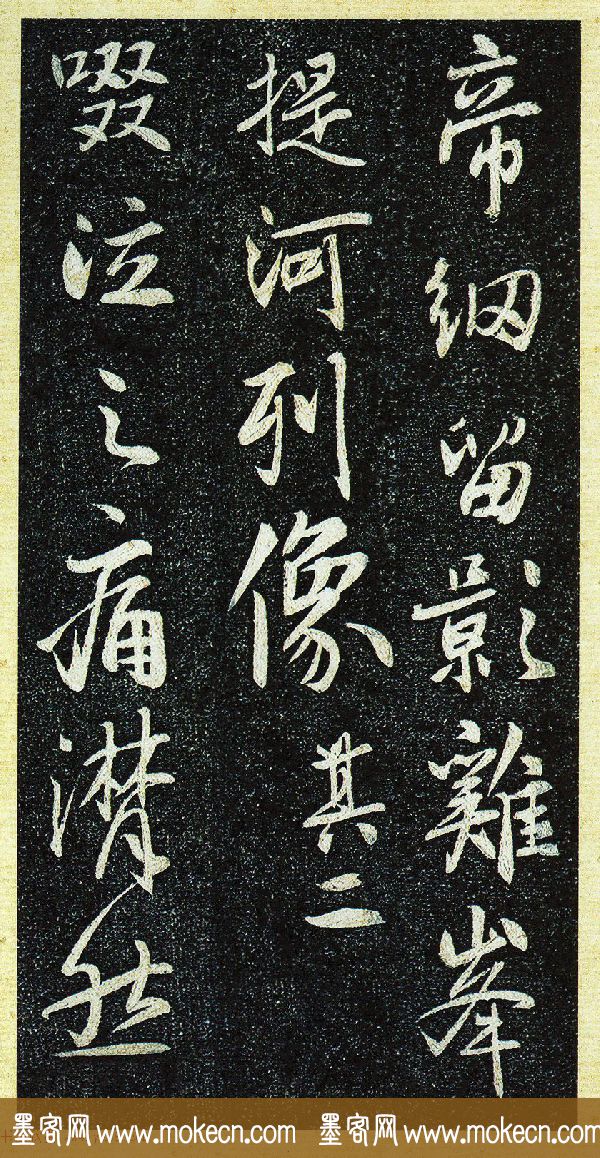 帝網留影雞峯
提河列像 其二
啜泣之痛潸然
墨客网 www.mokecn.com 墨客网 www.mokecn.com